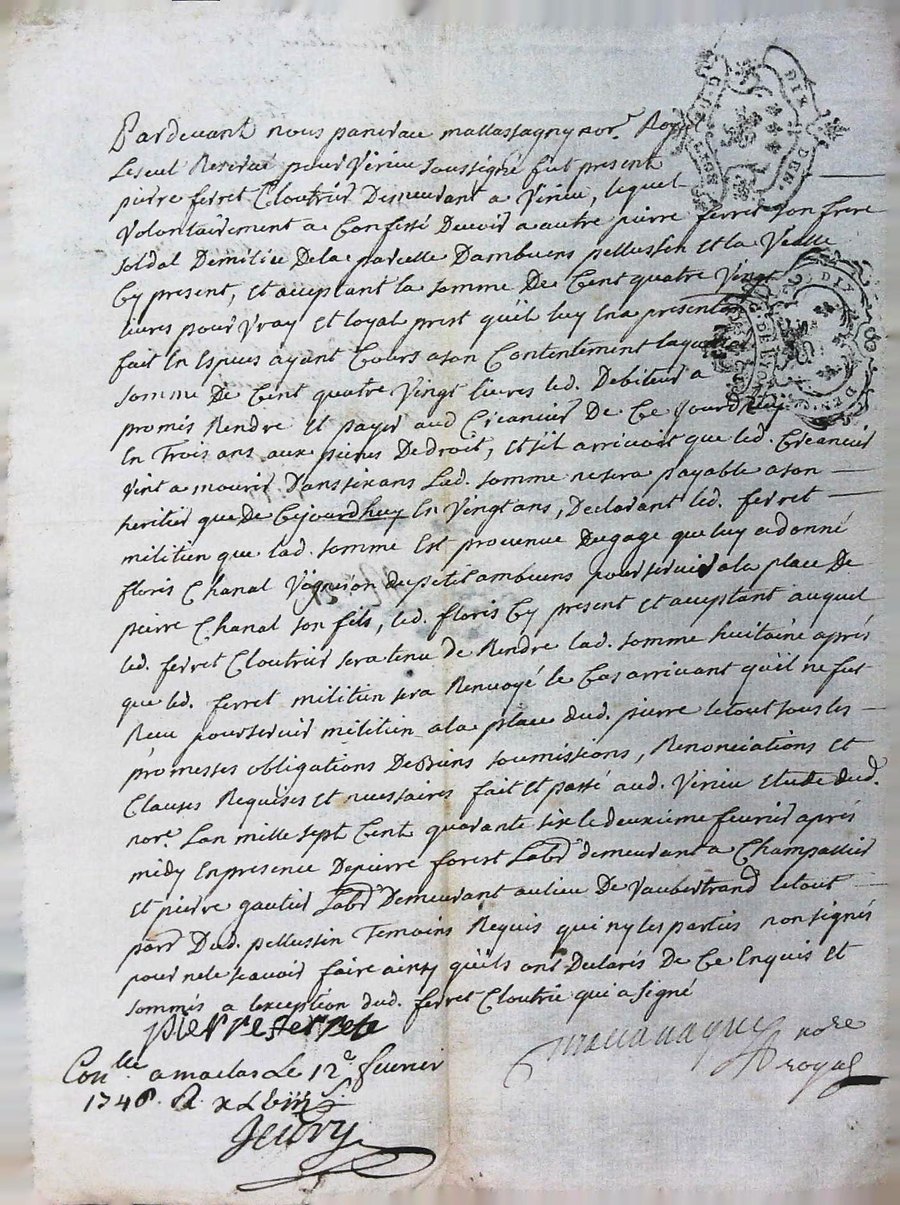 Pardevant nous pancrace mallassagny nore. Royal
Leseul Reservé pour Virieu soussigné fut present
pierre ferret Cloutrier Demeurant a Virieu, lequel
volontairement a Confessé Devoir a autre pierre ferret son frere
soldat Demilice Dela parcelle Dambuens pellussin et la Valla
Cy present, et acceptant la somme De Cent quatre Vingt
livres pour Vray et loyal prest quil luy En a presentem
fait En Especes ayant Cours a son Contentement laquelle
somme De Cent quatre Vingt livres led. Debiteur a
promis Rendre et payer aud Creancier De Ce jourdhuy
En Trois ans aux peines De droit, et sil arrivoit que led. Creancier
vint a mourir Dans six ans Lad. somme ne sera payable a son
heritier que De Cejourdhuy En Vingt ans, Declarant led. ferret
militien que lad. somme Est provenue Dugage que luy a donné
floris Chanal Vigneron du petit ambuens pour servir a la place De
pierre Chanal son fils, led. floris Cy present et acceptant auquel
led. ferret Cloutrier sera tenu de Rendre lad. somme huitaine après
que led. ferret militien sera Renvoyé le Cas arrivant quil ne fut
Receu pour servir militien a la place dud. pierre le tout sous les
promesses obligations De Biens soumissions, Renonciations et
Clauses Requises et necessaires fait et passé aud. Virieu etude dud.
nore. Lan mille sept Cent quarante six le deuxième fevrier après
midy En presence De pierre forest Labr demeurant a Champallier
et pierre gautier Labr Demeurant au lieu De Vaubertrand le tout
parr Dud. pellussin Temoins Requis qui ny les parties non signés
pour ne le scavoir faire ainsy quils ont Declarés De Ce Enquis et
sommés a lexception dud. ferret Cloutrie qui a signé
pierre ferrete
nore
royal
Conlle a maclas Le 12e fevrier
1746. R